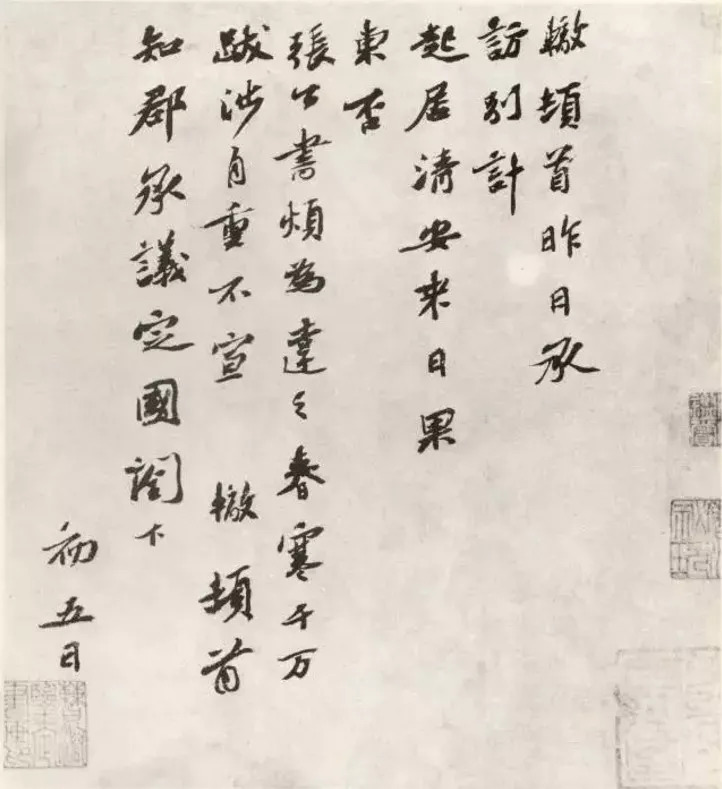 轍頓首昨日承
訪别計
起居清安来日果
東否
張公書煩為達之春寒千万
跋涉自重不宣 轍頓首
知郡承議定國閤下
初五日